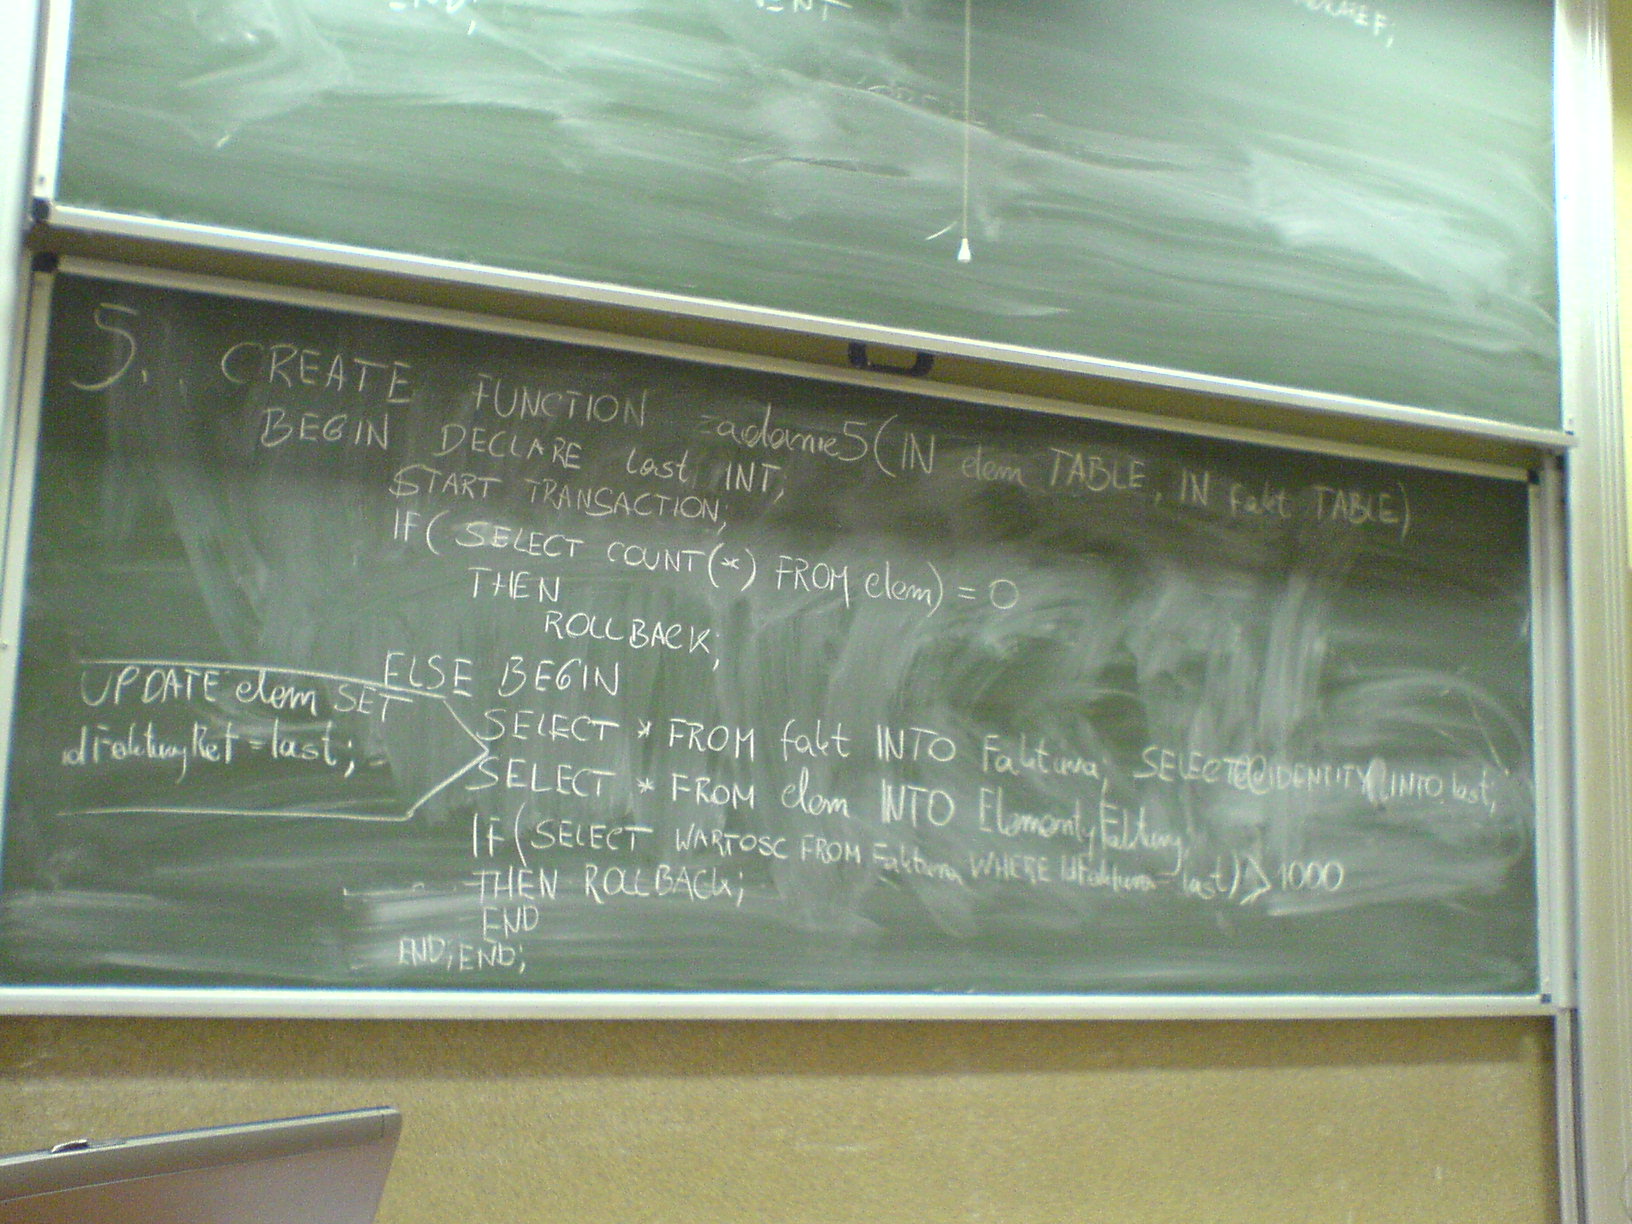 END;
5. CREATE FUNCTION zadanie5(IN elem TABLE, IN fakt TABLE)
BEGIN DECLARE last INT;
START TRANSACTION;
IF( SELECT COUNT(*) FROM elem) = 0
THEN
ROLLBACK;
ELSE BEGIN
UPDATE elem SET
idFakturyRef = last;
SELECT * FROM fakt INTO Faktura; SELECT@@IDENTITY INTO last;
SELECT * FROM elem INTO ElementyFaktury;
IF (SELECT WARTOSC FROM Faktura WHERE IdFaktura = last) > 1000
THEN ROLLBACK;
END
END; END;